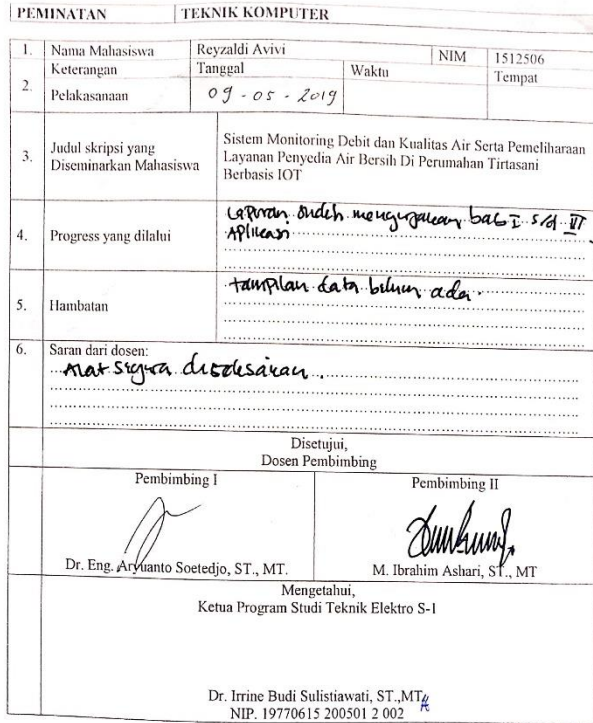 PEMINATAN TEKNIK KOMPUTER
1. Nama Mahasiswa Reyzaldi Avivi NIM 1512506
2. Keterangan Pelakasanaan Tanggal Waktu Tempat
09-05-2019
3. Judul skripsi yang Diseminarkan Mahasiswa
Sistem Monitoring Debit dan Kualitas Air Serta Pemeliharaan
Layanan Penyedia Air Bersih Di Perumahan Tirtasani
Berbasis IOT
4. Progress yang dilalui
Laporan sudah mengerjakan bab I s/d III
Aplikasi
5. Hambatan
tampilan data belum ada.
6. Saran dari dosen:
Alat segera diselesaikan.
Disetujui,
Dosen Pembimbing
Pembimbing I Pembimbing II
Dr. Eng. Aryuanto Soetedjo, ST., MT. M. Ibrahim Ashari, ST., MT
Mengetahui,
Ketua Program Studi Teknik Elektro S-1
Dr. Irrine Budi Sulistiawati, ST.,MT
NIP. 19770615 200501 2 002